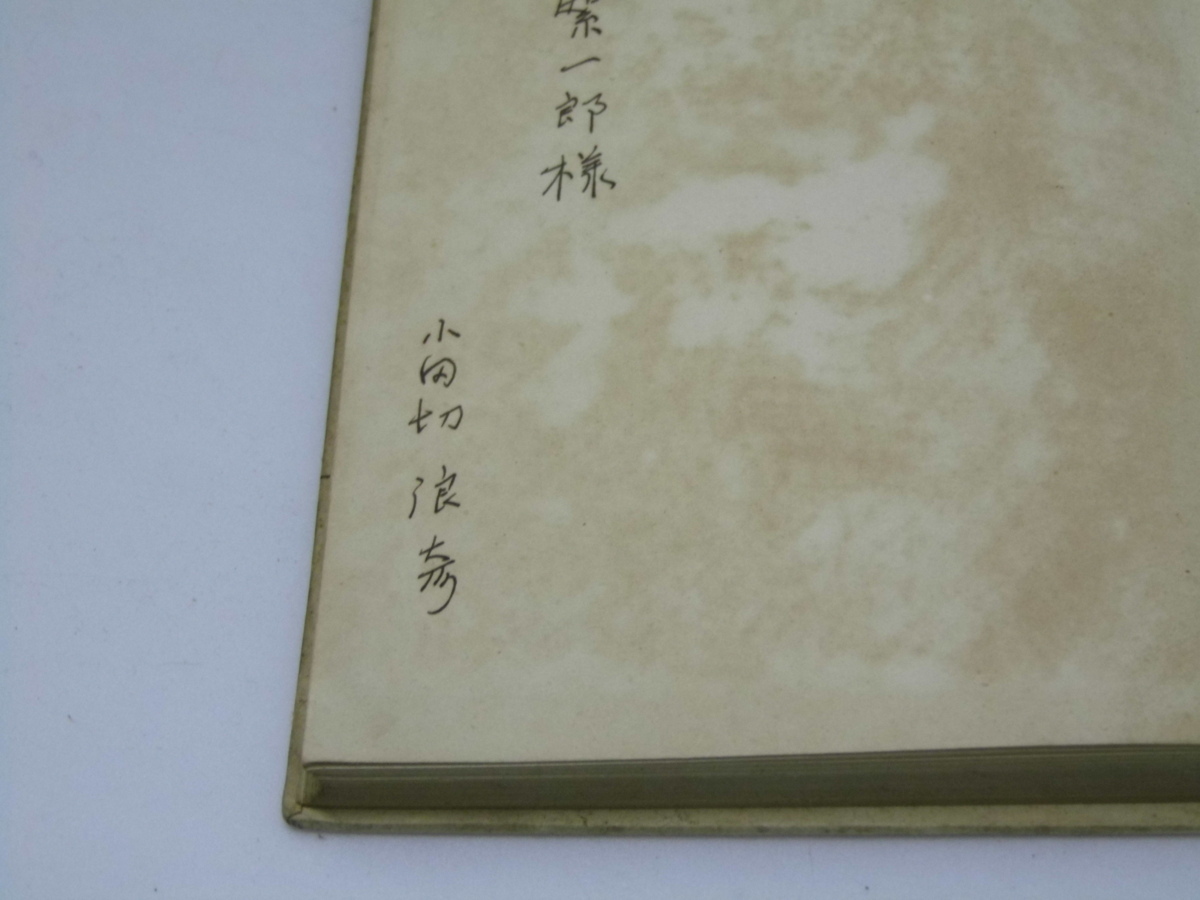 一郎様
小田切 浪彦